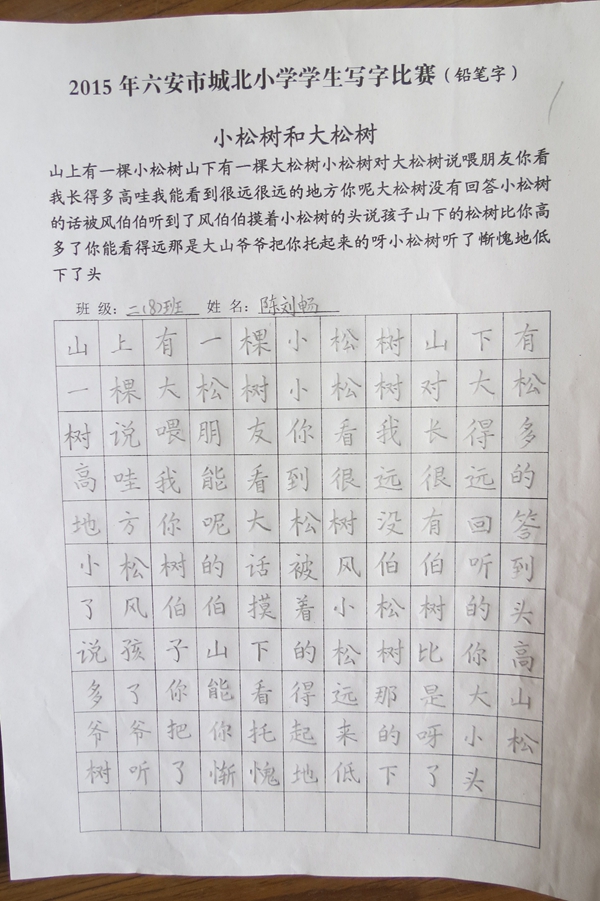 2015年六安市城北小学学生写字比赛（铅笔字）
小松树和大松树
山上有一棵小松树山下有一棵大松树小松树对大松树说喂朋友你看
我长得多高哇我能看到很远很远的地方你呢大松树没有回答小松树
的话被风伯伯听到了风伯伯摸着小松树的头说孩子山下的松树比你高
多了你能看得远那是大山爷爷把你托起来的呀小松树听了惭愧地低
下了头
班级:二(8)班 姓名:陈刘畅
山上有一棵小松树山下有
一棵大松树小松树对大松
树说喂朋友你看我长得多
高哇我能看到很远很远的
地方你呢大松树没有回答
小松树的话被风伯伯听到
了风伯伯摸着小松树的头
说孩子山下的松树比你高
多了你能看得远那是大山
爷爷把你托起来的呀小松
树听了惭愧地低下了头